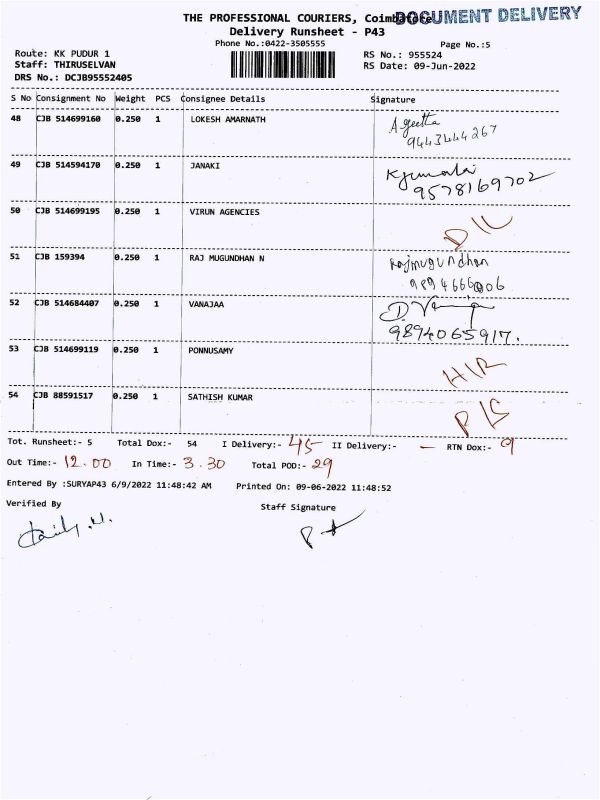 THE PROFESSIONAL COURIERS, Coimbatore
DOCUMENT DELIVERY
Delivery Runsheet - P43
Phone No.:0422-3505555
Page No.:5
Route: KK PUDUR 1
RS No.: 955524
Staff: THIRUSELVAN
RS Date: 09-Jun-2022
DRS No.: DCJB95552405
S No Consignment No Weight PCS Consignee Details Signature
48 CJB 514699160 0.250 1 LOKESH AMARNATH A. Geetha
9443444267
49 CJB 514594170 0.250 1 JANAKI
9578169702
50 CJB 514699195 0.250 1 VIRUN AGENCIES D/L
51 CJB 159394 0.250 1 RAJ MUGUNDHAN N Rajmugundhan
52 CJB 514684407 0.250 1 VANAJAA
9894065917.
53 CJB 514699119 0.250 1 PONNUSAMY
54 CJB 88591517 0.250 1 SATHISH KUMAR
Tot. Runsheet:- 5 Total Dox:- 54 I Delivery:- 45 II Delivery:- — RTN Dox:- 9
Out Time:- 12.00 In Time:- 3.30 Total POD:- 29
Entered By :SURYAP43 6/9/2022 11:48:42 AM Printed On: 09-06-2022 11:48:52
Verified By
Staff Signature